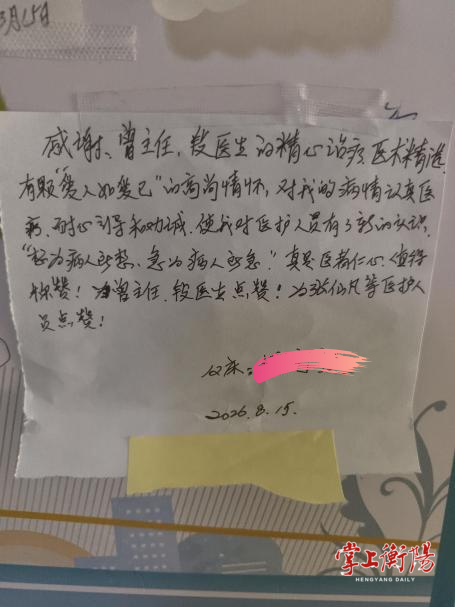 3月15日
感谢、曾主任，段医生的精心治疗，医术精湛
有颗“爱人如爱己”的高尚情怀，对我的病情认真医
疗，耐心引导和劝诫，使我对医护人员有了新的认识，
“想为病人所想，急为病人所急”。真是医者仁心，值得
称赞！为曾主任、段医生点赞！为张仙凡等医护人
员点赞！
2026.8.15.
掌上衡陽
HENGYANG DAILY